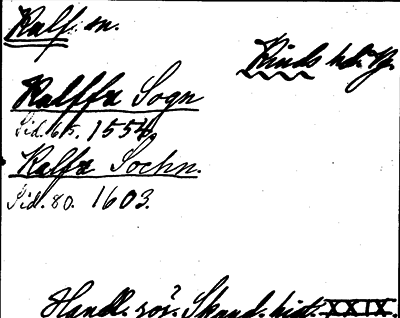 Kalf sn.
Rinds hd. V.
Kalffue Sogn
Sid. 65. 1554,
Kalfue Sochn.
Sid. 80. 1603.
Handl. rör? Skand. hist. XXIX.